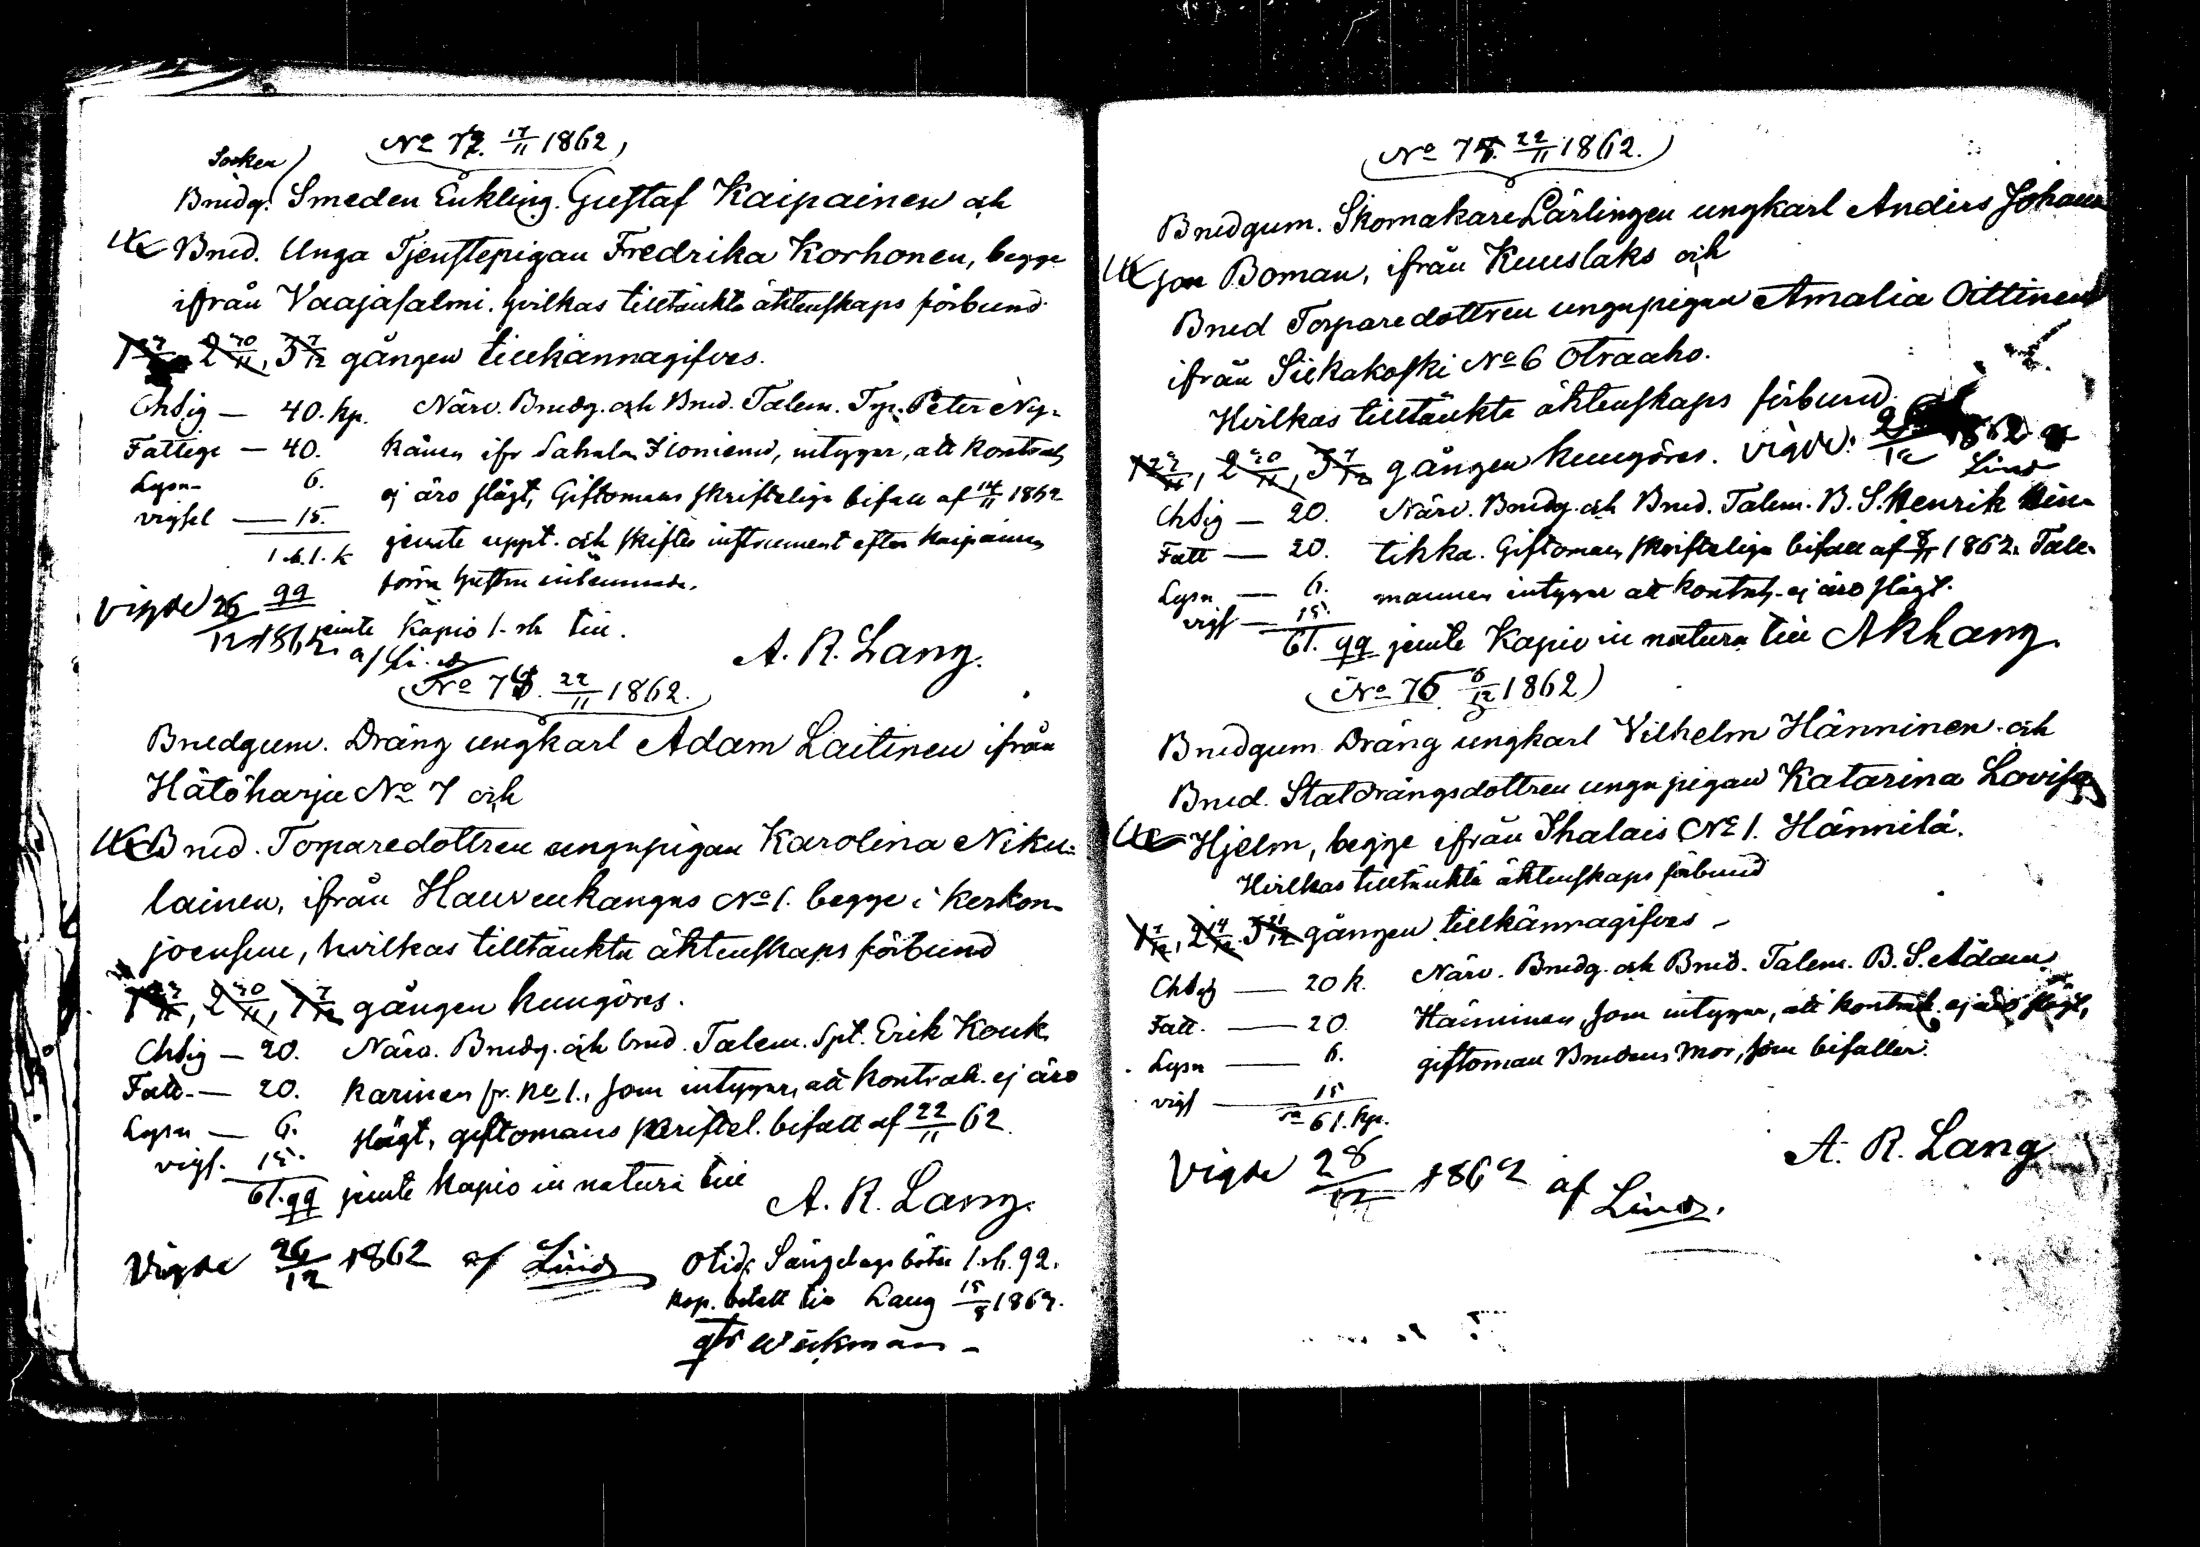 No 72. 17/11 1862
Socken
Brudg. Smeden Enkling. Gustaf Kaipainen och
Brud. Unga Tjenstepigan Fredrika Korhonen, begge
ifrån Vaajasalmi. hvilkas tilltänkta äktenskaps förbund
2 30/11, 3 7/12 gången tillkännagifves.
Chsig — 40. kp. Närv. Brudg. och Brud. Talem. Tp. Peter Ny-
Fattige — 40. känen ifr Sahala intygar, att kontrah
Lysn 6. ej äro slägt, Giftomans skrifteliga bifall af 14/11 1862
vigsel — 15. jemte uppt. och skiftes instrument efter Kaipainens
1 rb. 1. k förra hustru inlemnade.
Vigde 26/12 1862 af Lind
99 jemte Kapio 1. rb till.
A. R. Lang.
No 73. 22/11 1862.
Brudgum. Dräng ungkarl Adam Laitinen ifrån
Hätöharju No 7 och
Brud. Torparedottren unga pigan Karolina Niku-
lainen, ifrån Hauvenkangas No 1. begge i Kerkon-
joensuu, hvilkas tilltänkta äktenskaps förbund
1 23/11, 2 30/11, 7/12 gången kungöres.
Chsig — 20. Närv. Brudg. och brud. Talem. Spt. Erik Kouk
Fatt. — 20. karinen fr. No 1., som intygar, att kontrah. ej äro
Lysn — 6. slägt, giftomans skriftel. bifall af 22/11 62.
vigs. 15.
61. 99 jemte kapio in natura till
A. R. Lang.
Vigde 26/12 1862 af Lind
otid. Sängelags böter 1. rb. 92.
kop. betalt till Lang 15/8 1862.
Wickman
No 74. 22/11 1862.
Brudgum. Skomakare Lärlingen ungkarl Anders Johans
son Boman, ifrån Kuuslaks och
Brud Torparedottren unga pigan Amalia Oittinen
ifrån Siekakoski No 6 Otraaho.
Hvilkas tilltänkta äktenskaps förbund
1 23/11, 2 30/11, 3 7/12 gången kungöres. vigde: 1862 af
Lind
Chsig — 20. Närv. Brudg. och Brud. Talem. B. S. Henrik Hin-
Fatt — 20. tikka. Giftomans skriftliga bifall af 8/11 1862. Tale-
Lysn — 6. mannen intygar att kontrah. ej äro slägt.
vigs — 15.
61. 99 jemte Kapio in natura till A R Lang
No 75 6/12 1862
Brudgum Dräng ungkarl Vilhelm Hänninen och
Brud. Staldrängsdottren unga pigan Katarina Lovisa
Hjelm, begge ifrån Ihalais No 1. Hännilä.
Hvilkas tilltänkta äktenskaps förbund
1 7/12, 2 14/12 3 21/12 gången tillkännagifves —
Chsig — 20 k. Närv. Brudg. och Brud. Talem. B. S. Adam
Fatt. — 20. Hänninen, som intygar, att kontrah. ej äro slägt,
Lysn — 6. giftoman Brudens Mor, som bifaller.
vigs — 15
61. kp.
A. R. Lang
Vigde 28/12 1862 af Lind.